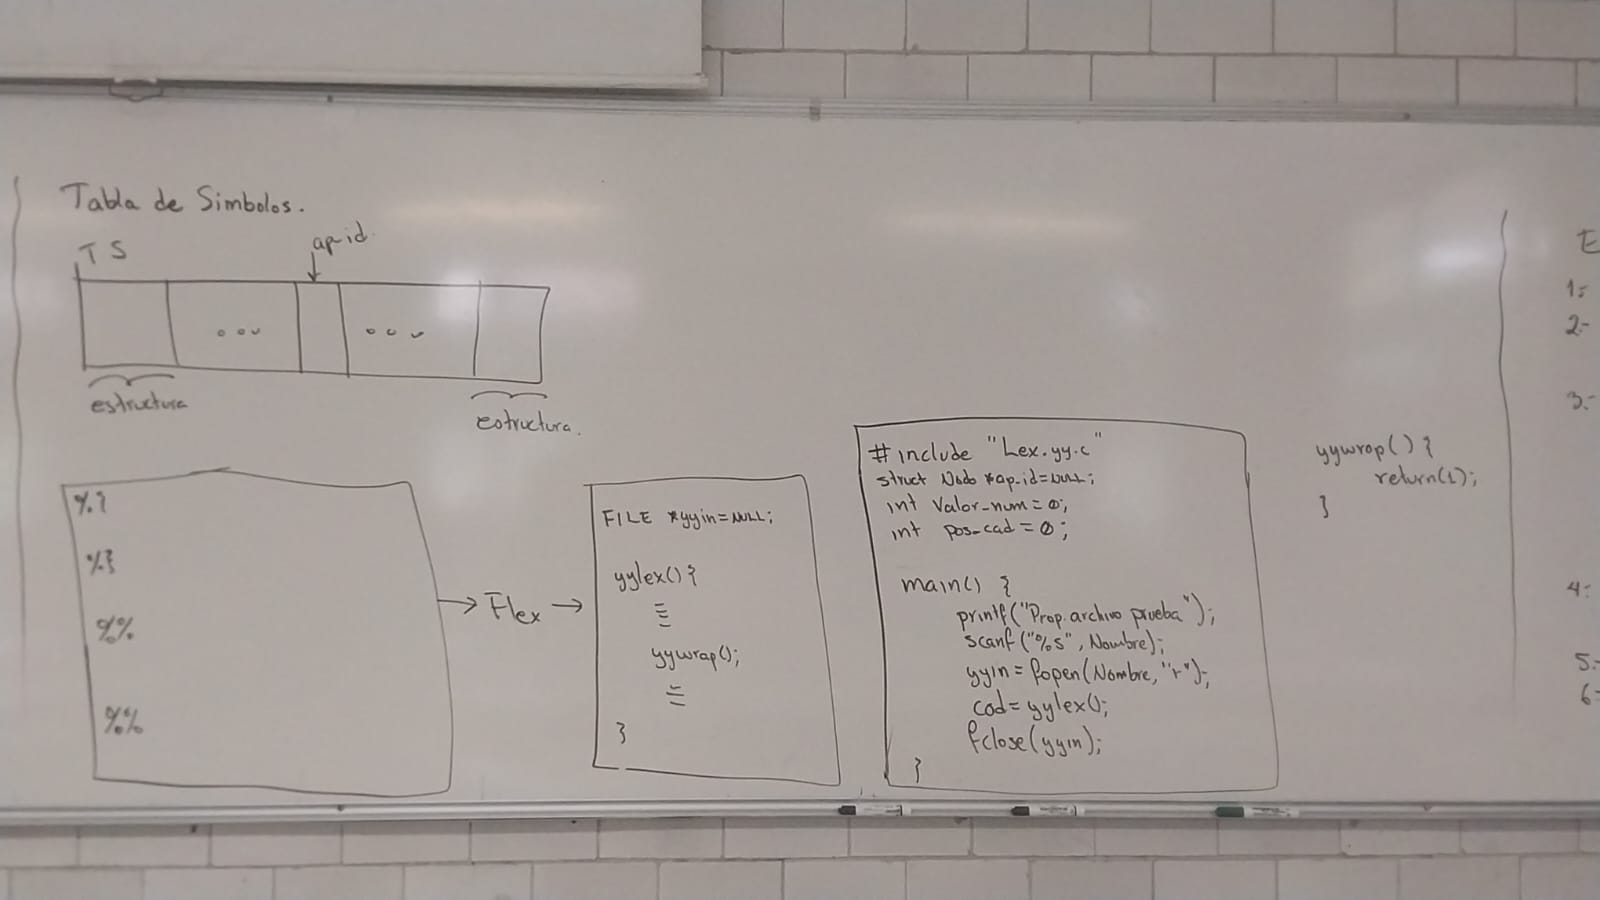 Tabla de Simbolos.
TS
ap-id.
estructura
estructura.
%{
%}
%%
%%
Flex
FILE *yyin=NULL;
yylex(){
yywrap();
}
#include "Lex.yy.c"
struct Nodo *ap_id=NULL;
int Valor_num=0;
int pos_cad=0;
main() {
printf("Prop. archivo prueba");
scanf("%s", Nombre);
yyin=fopen(Nombre,"r");
cod=yylex();
fclose(yyin);
}
yywrap(){
return(1);
}
E
1:
2.-
3.-
4:
5.-
6-